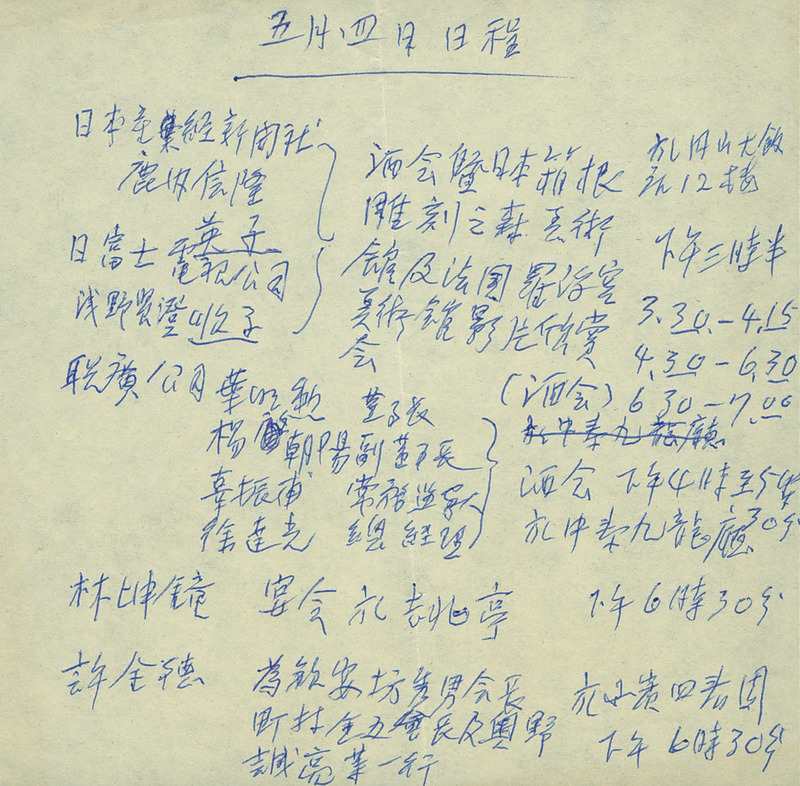 五月四日日程
日本產業經新聞社
鹿内信隆
英子
日富士電視公司
浅野賢澄
酒会暨日本箱根
雕刻之森美術
館及法国羅浮宮
美術館影片欣賞
会
於円山大飯
店12楼
下午三時半
3.30-4.15
4.30-6.30
(酒会) 6.30-7.00
联廣公司
葉明勲 董事長
楊朝陽副董事長
辜振甫 常務監察人
徐達光 總經理
於中泰九龍廳
酒会 下午4時至5時
30分
於中泰九龍廳
林坤鐘 宴会於兆亭 下午6時30分
許金德
為欽宴坊秀男会長
町村金五會長及奧野
誠亮等一行
於四春園
下午6時30分